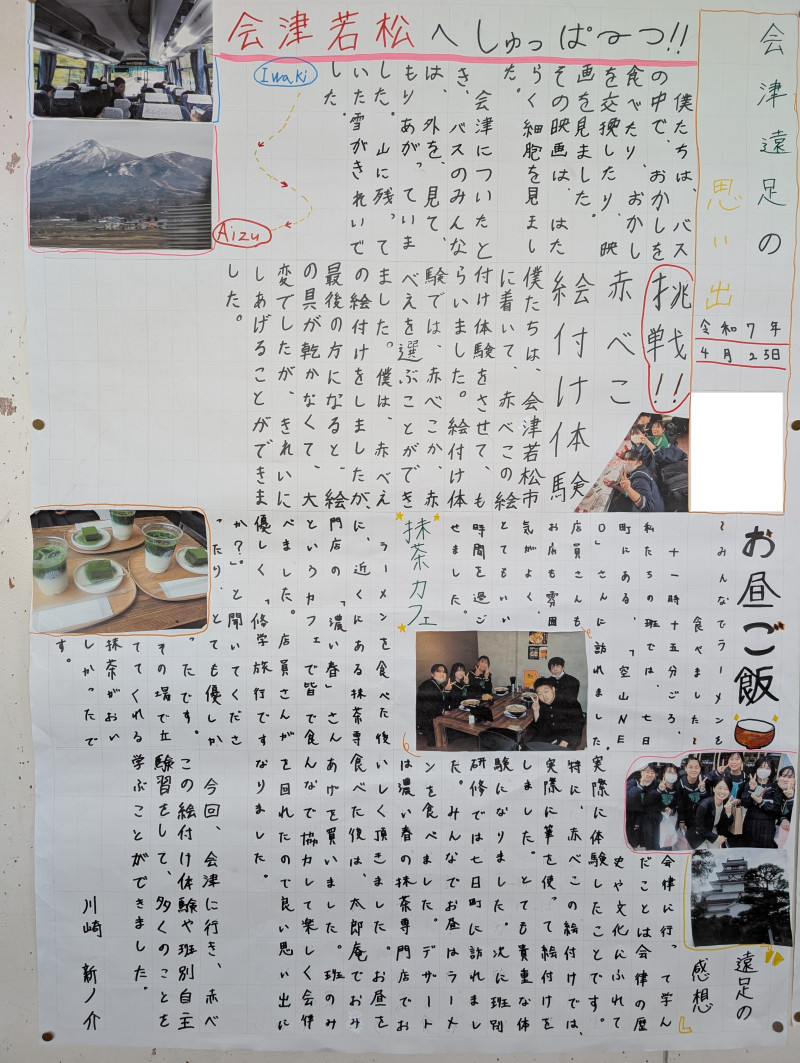 会津遠足の
思い出
令和7年
4月25日
会津若松へしゅっぱーつ!!
Iwaki
Aizu
僕たちは、バス
の中で、おかしを
食べたり、おかし
を交換したり、映
画を見ました。
その映画は、はた
らく細胞を見まし
た。
会津についたと
き、バスのみんな
は、外を、見て、
もりあがっていま
した。山に残って
いた雪がきれいで
した。
挑戦!!
赤べこ
絵付け体験
僕たちは、会津若松市
に着いて、赤べこの絵
付け体験をさせて、も
らいました。絵付け体
験では、赤べこか、赤
べえを選ぶことができ
ました。僕は、赤べえ
の絵付けをしましたが、
最後の方になると、絵
の具が乾かなくて、大
変でしたが、きれいに
しあげることができま
した。
お昼ご飯
~みんなでラーメンを
食べました~
十一時十五分ごろ、
私たちの班では、七日
町にある、「空山NE
O」さんに訪れました。
店員さんも
お店も雰囲
気がよく、
とてもいい
時間を過ご
せました。
抹茶カフェ
ラーメンを食べた後
に、近くにある抹茶専
門店の「濃い春」さん
というカフェで皆で食
べました。店員さんが
優しく「修学旅行です
か?」と聞いてくださ
ったり、とても優しか
ったです。
その場で立
ててくれる
抹茶がおい
しかったで
す。
遠足の
感想
会律に行って学ん
だことは会律の歴
史や文化にふれて
実際に体験したことです。
特に、赤べこの絵付けでは、
実際に筆を使って絵付けを
しました。とても貴重な体
験になりました。次に班別
研修では七日町に訪れまし
た。みんなでお昼はラーメ
ンを食べました。デザート
は濃い春の抹茶専門店でお
いしく頂きました。お昼を
食べた後は、太郎庵でおみ
あげを買いました。班のみ
んなで協力して楽しく会律
を回れたので良い思い出に
なりました。
今回、会津に行き、赤べ
この絵付け体験や班別自主
験習をして、多くのことを
学ぶことができました。
川崎 新ノ介